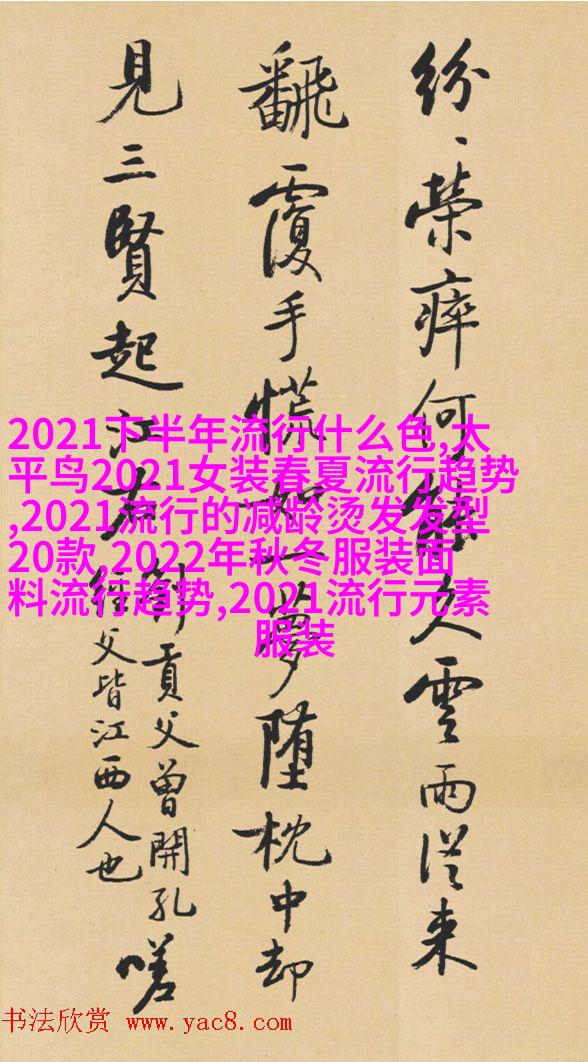 紛〻榮瘁何能久雲雨從來
飜覆手慌如一夢墮枕中却
見三賢起江右
劉貢父曾開孔
經父皆江西人也
嗟
2021下半年流行什么色,太
平鸟2021女装春夏流行趋势
,2021流行的减龄烫发发型
20款,2022年秋冬服装面
料流行趋势,2021流行元素
服装
书法欣赏 www.yac8.com